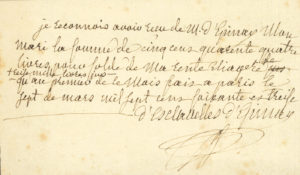 je reconnois avoir recu de M. d'Epinay Mon
mari la somme de cinq cens quarente quatre
livres, pour solde de Ma rente viagere de
trois mille livres
qu'au premier de ce Mois fait a paris le
sept de mars mil sept cens soixante et treise
d'Esclavelles d'Epinay